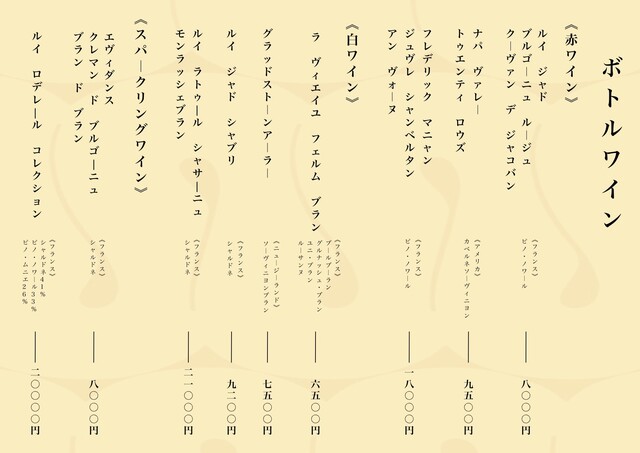 ボトルワイン
《赤ワイン》
ルイ ジャド
ブルゴーニュ ルージュ
クーヴァン デ ジャコバン
（フランス）
ピノ・ノワール
八〇〇〇円
ナパ ヴァレー
トゥエンティ ロウズ
（アメリカ）
カベルネソーヴィニヨン
九五〇〇円
フレデリック マニャン
ジュヴレ シャンベルタン
アン ヴォーヌ
（フランス）
ピノ・ノワール
一八〇〇〇円
《白ワイン》
ラ ヴィエイユ フェルム ブラン
（フランス）
ブールブーラン
グルナッシュ・ブラン
ユニ・ブラン
ルーサンヌ
六五〇〇円
グラッドストーンアーラー
（ニュージーランド）
ソーヴィニヨンブラン
七五〇〇円
ルイ ジャド シャブリ
（フランス）
シャルドネ
九二〇〇円
ルイ ラトゥール シャサーニュ
モンラッシェブラン
（フランス）
シャルドネ
二一〇〇〇円
《スパークリングワイン》
エヴィダンス
クレマン ド ブルゴーニュ
ブラン ド ブラン
（フランス）
シャルドネ
八〇〇〇円
ルイ ロデレール コレクション
（フランス）
シャルドネ41%
ピノ・ノワール33%
ピノ・ムニエ26%
二〇〇〇〇円